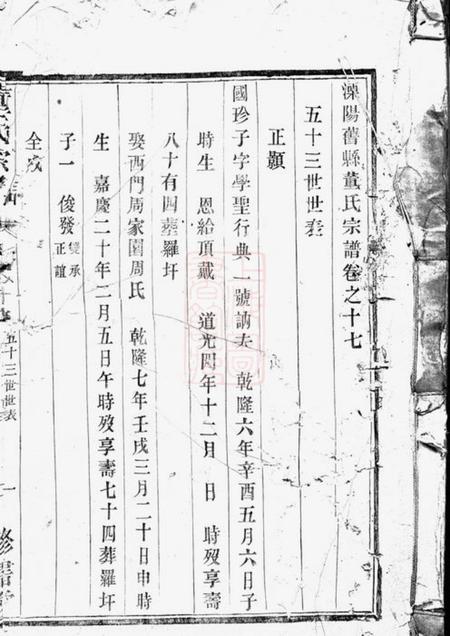 溧陽舊縣董氏宗譜卷之十七
五十三世世表
正顯
國珍子字學聖行典一號訥夫 乾隆六年辛酉五月六日子
時生 恩給頂戴 道光四年十二月 日 時歿享壽
八十有四葬羅圩
娶西門周家園周氏 乾隆七年壬戌三月二十日申時
生 嘉慶二十年二月五日午時歿享壽七十四葬羅圩
子一 俊發 雙承正誼
全戍
董氏宗譜
五十三世世表
一